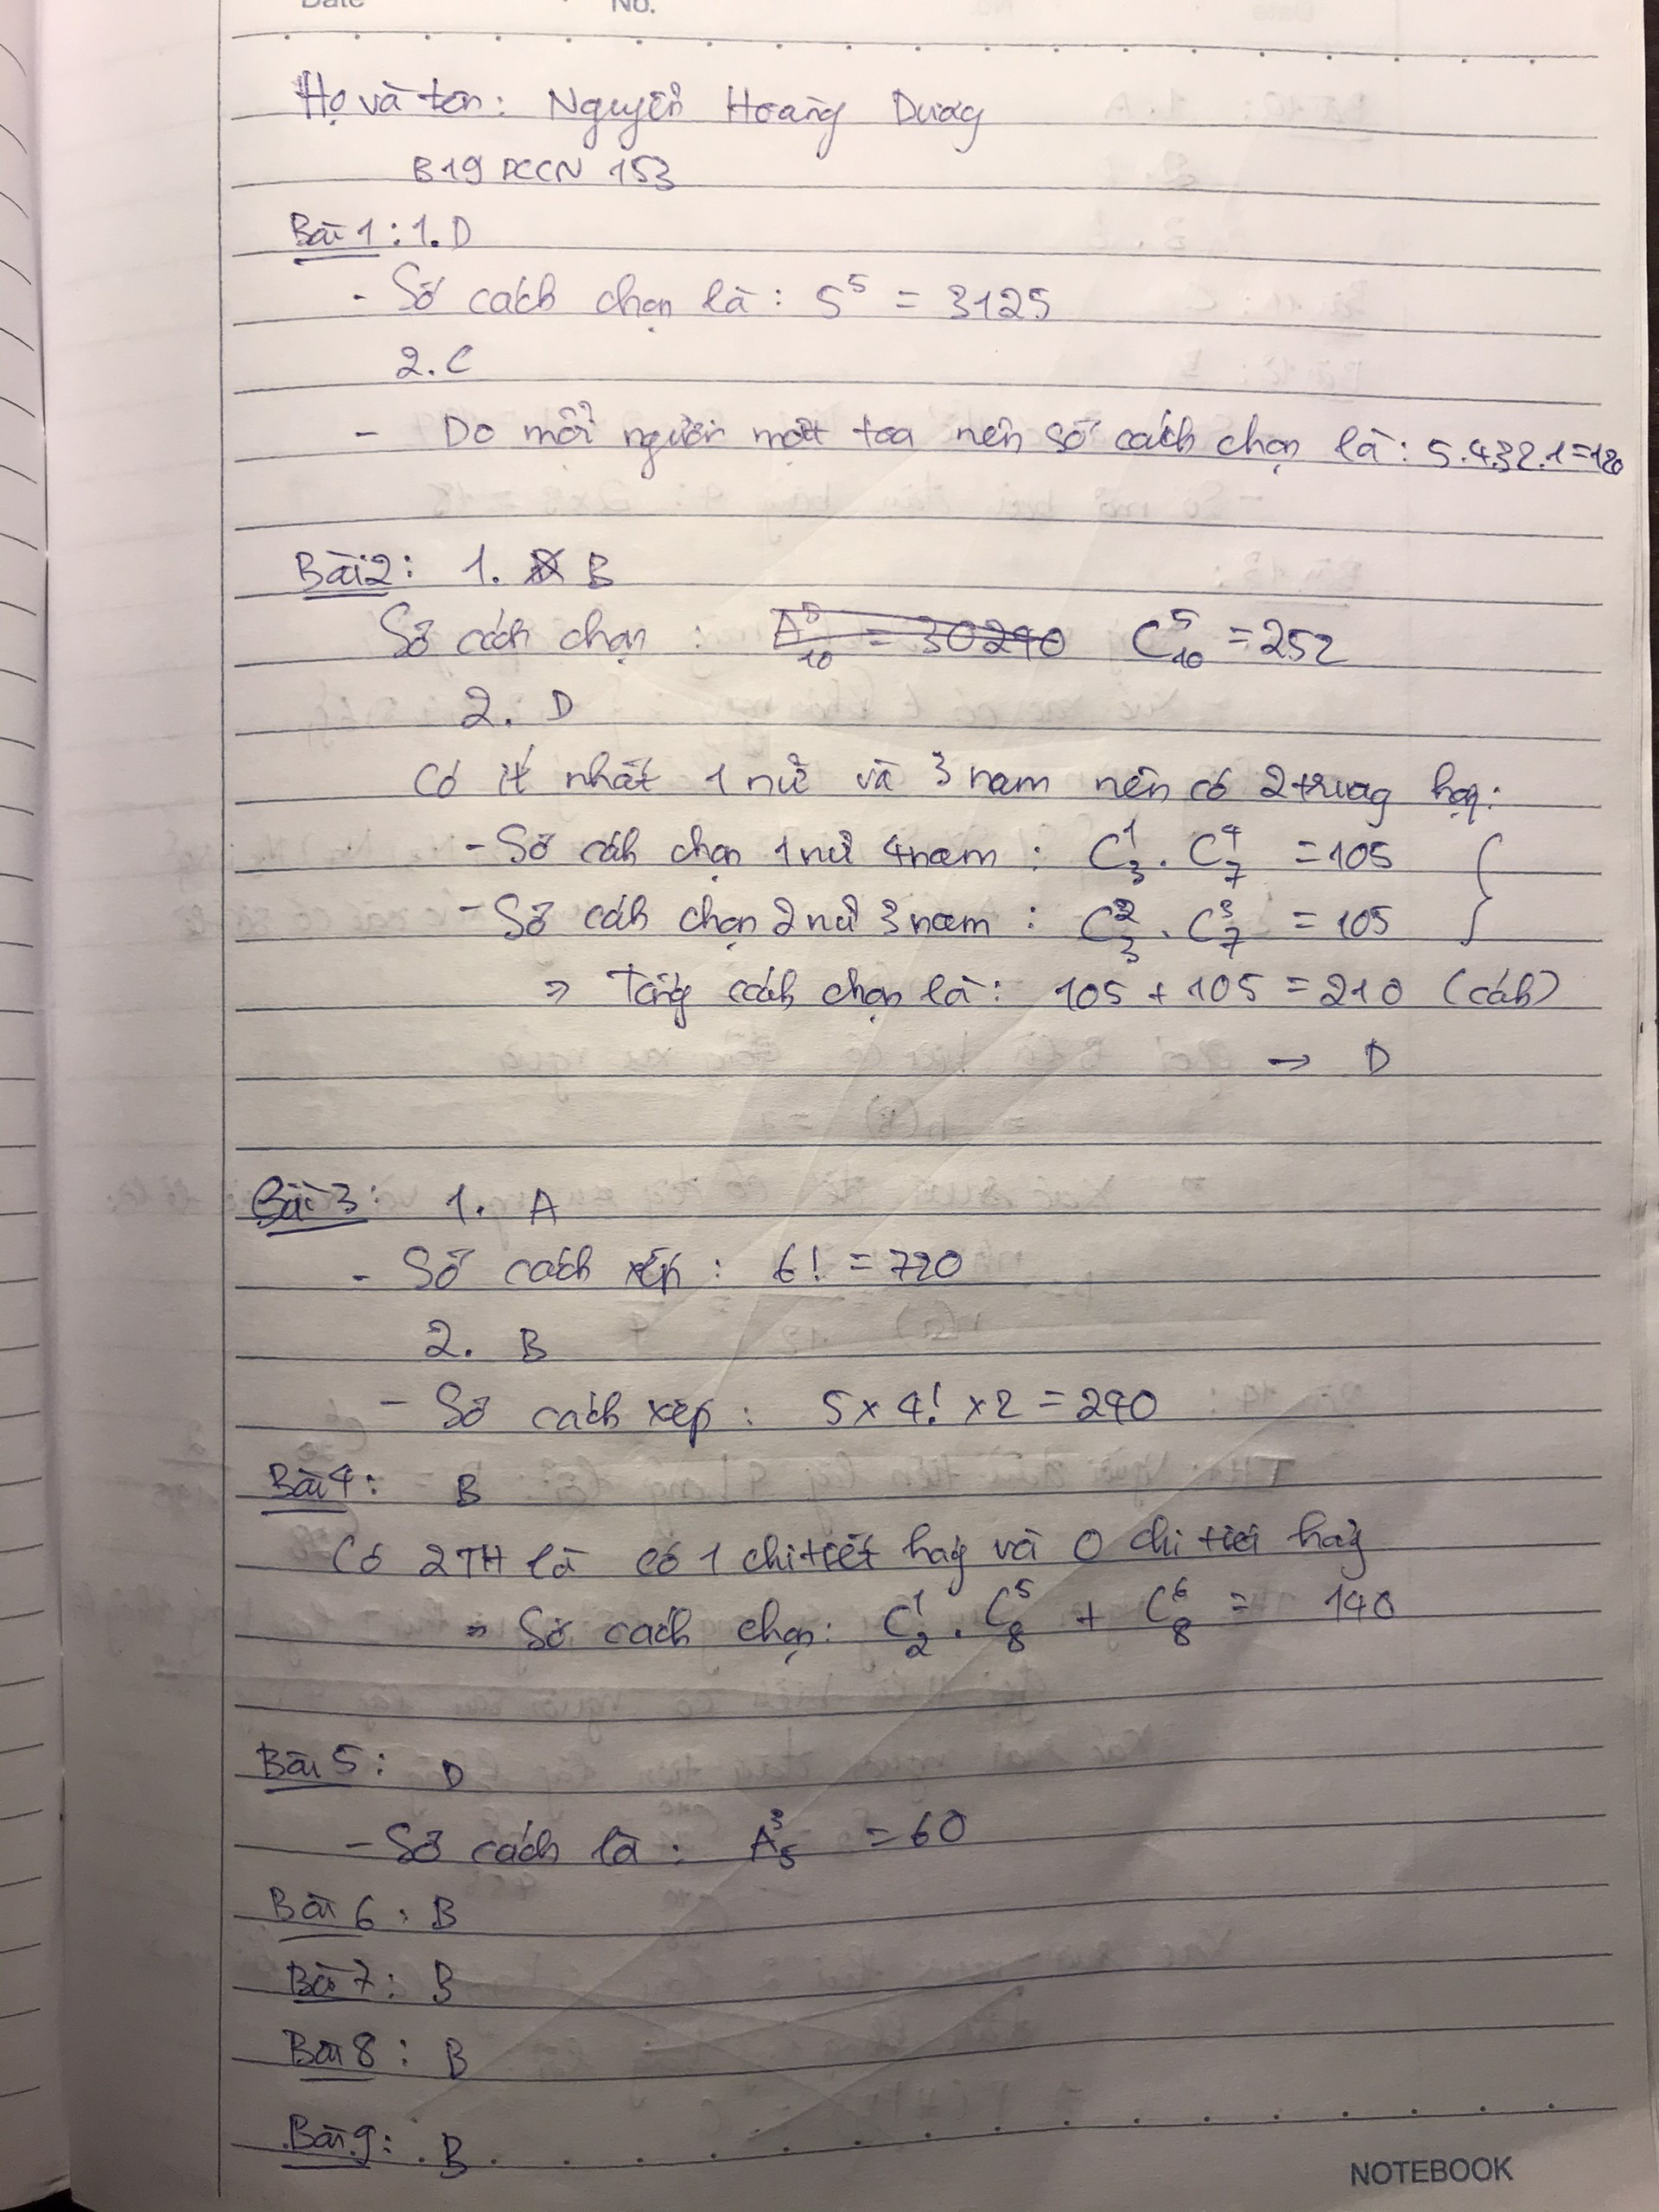 Date No.
Họ và tên: Nguyễn Hoàng Dương
B19DCCN 153
Bài 1: 1. D
- Số cách chọn là: 5^5 = 3125
2. C
- Do mỗi người một toa nên số cách chọn là: 5.4.3.2.1=120
Bài 2: 1. B
Số cách chọn : A^5_10 = 30240 C^5_10 = 252
2. D
Có ít nhất 1 nữ và 3 nam nên có 2 trường hợp:
- Số cách chọn 1 nữ 4 nam : C^1_3 . C^4_7 = 105
- Số cách chọn 2 nữ 3 nam : C^2_3 . C^3_7 = 105 }
⇒ Tổng cách chọn là: 105 + 105 = 210 (cách)
→ D
Bài 3: 1. A
- Số cách xếp : 6! = 720
2. B
- Số cách xếp : 5 x 4! x 2 = 240
Bài 4: B
Có 2 TH là có 1 chi tiết hỏng và 0 chi tiết hỏng
⇒ Số cách chọn: C^1_2 . C^5_8 + C^6_8 = 140
Bài 5: D
- Số cách là : A^3_5 = 60
Bài 6 : B
Bài 7 : B
Bài 8 : B
Bài 9: B
NOTEBOOK